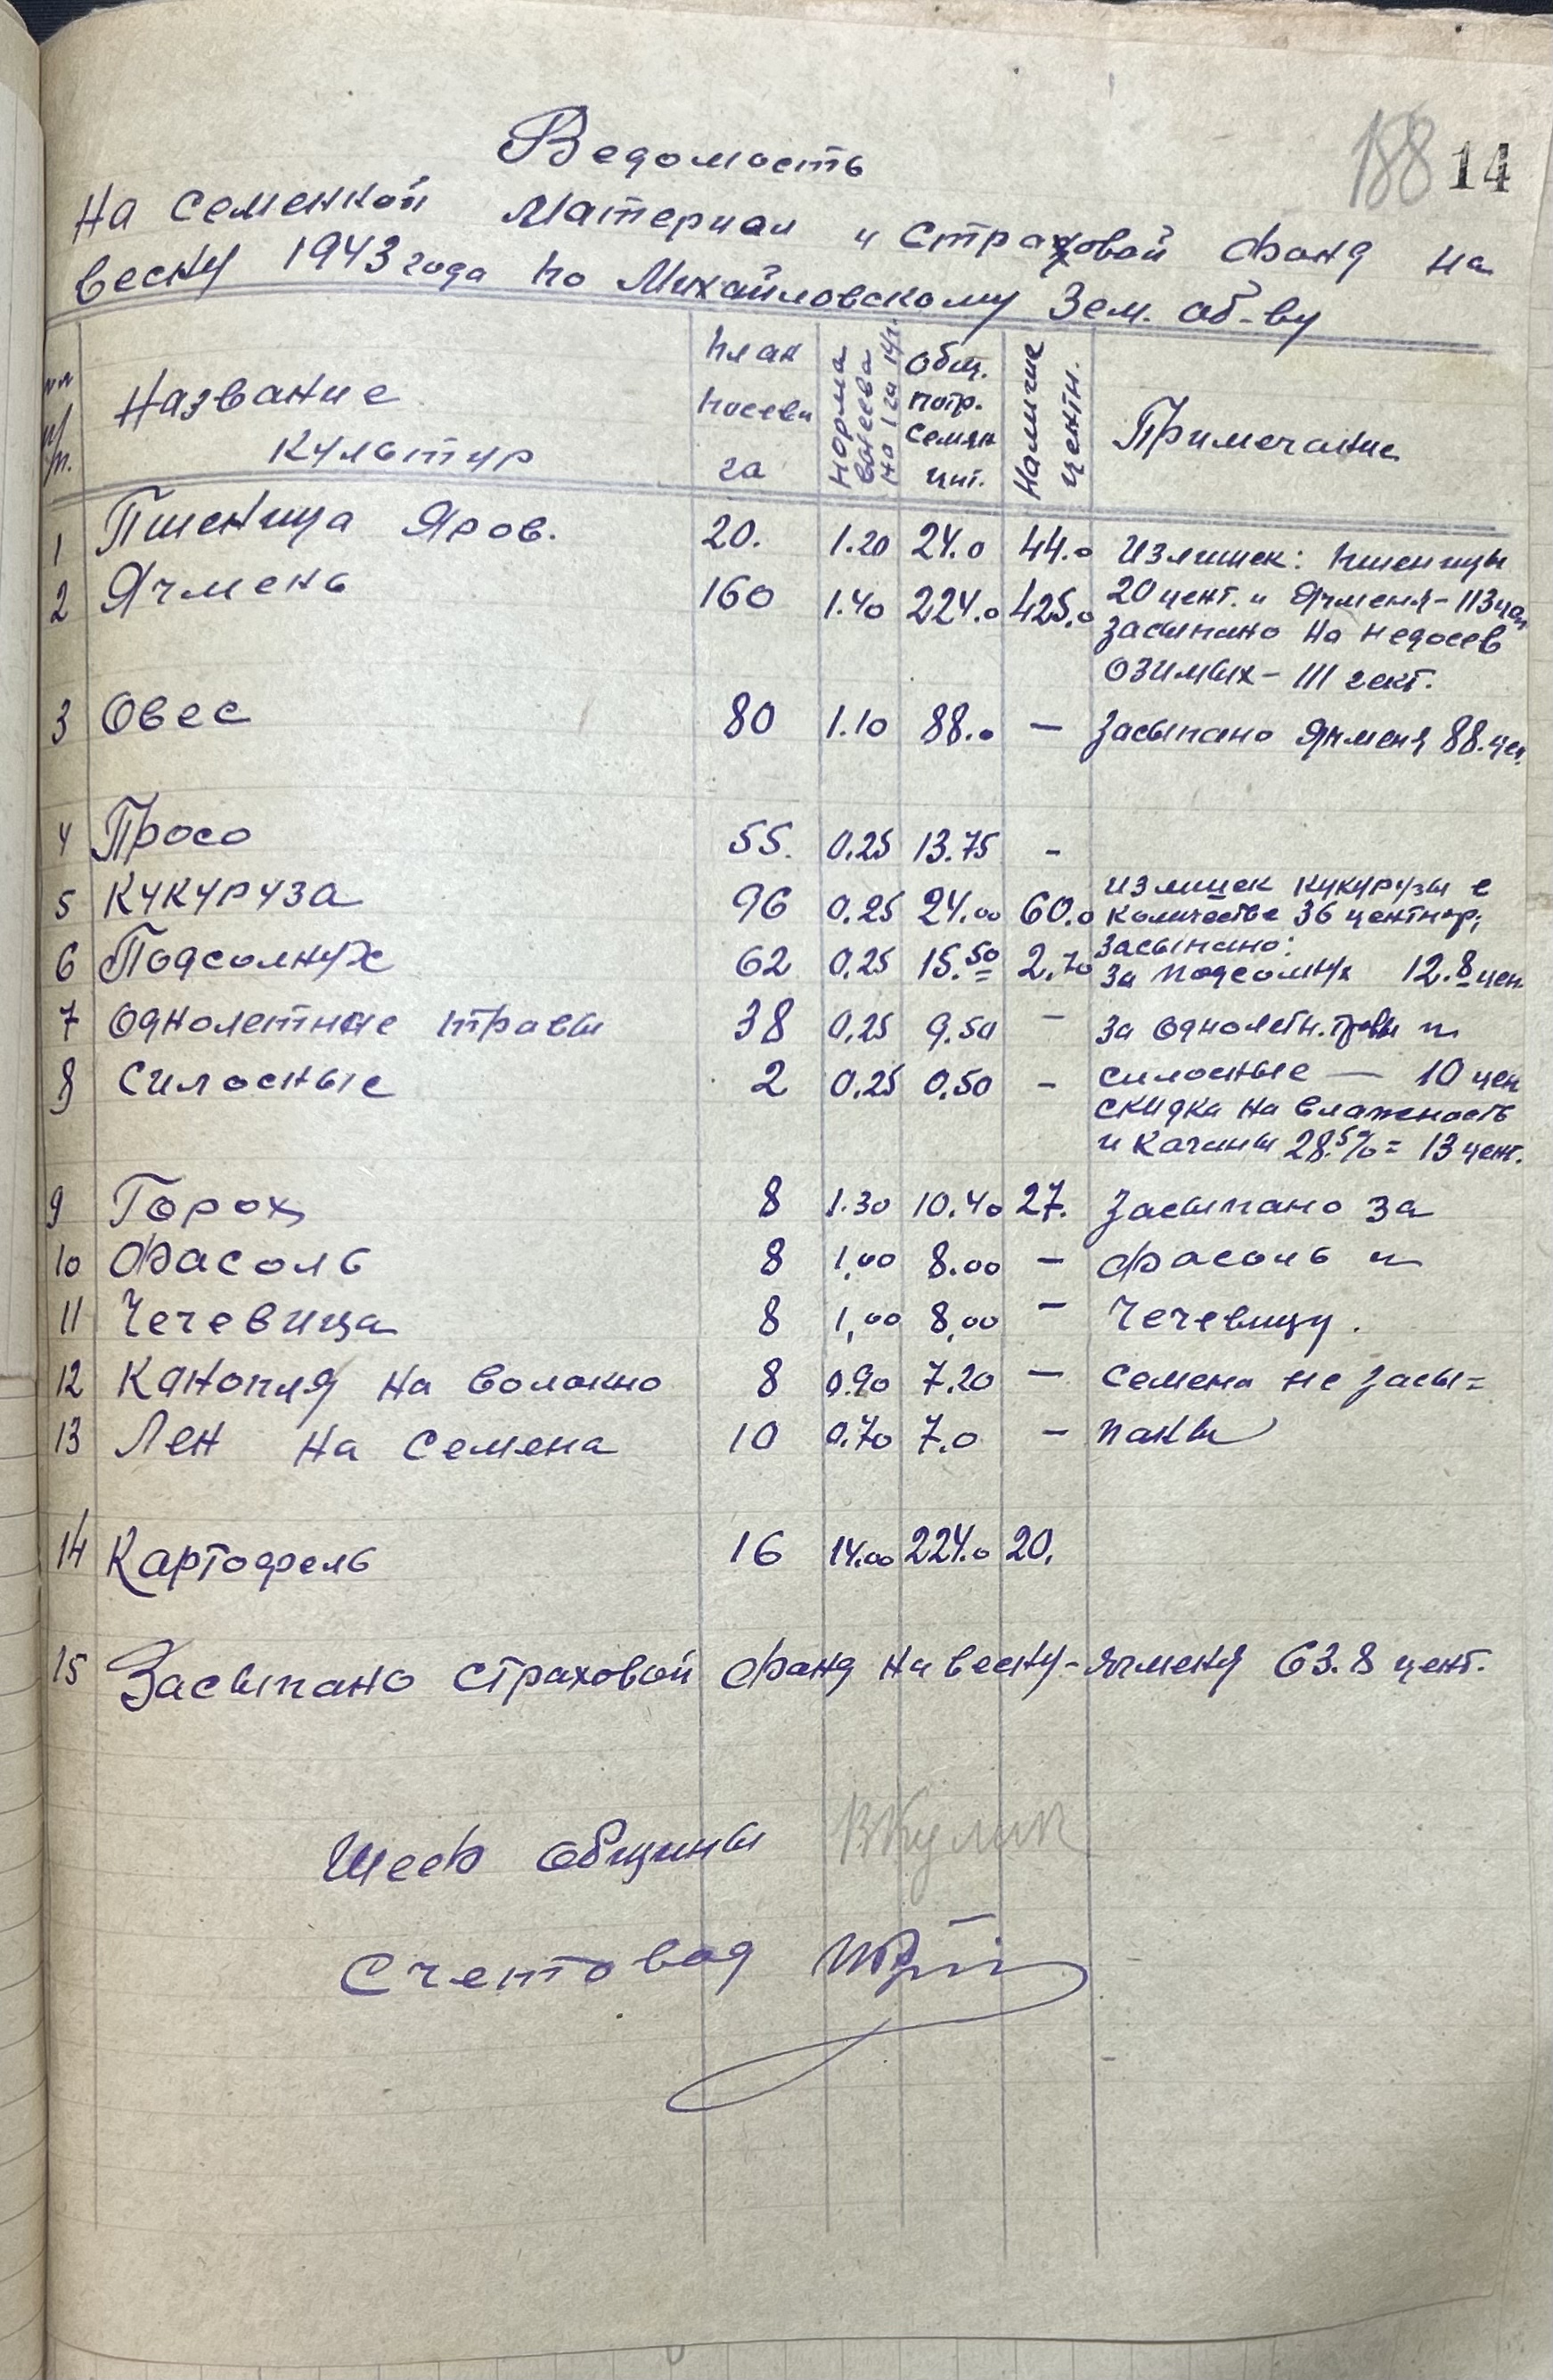 Ведомость
188 14
На семенной Материал и Страховой фонд на
весну 1943 года по Михайловскому Зем. об-ву
Название культур
План посева га
Норма высева на 1 га
Общ. потр. семян цнт.
Наличие центн.
Примечание
1 Пшеница Яров. 20. 1.20 24.0 44.0 Излишек: пшеницы
2 Ячмень 160 1.40 224.0 425.0 20 цент. и Ячменя - 113 цен
засыпано на недосев
озимых - 111 гект.
3 Овес 80 1.10 88.0 — Засыпано Ячменя 88. цен.
4 Просо 55. 0.25 13.75 -
5 Кукуруза 96 0.25 24.00 60.0 Излишек кукурузы в
количестве 36 центнер;
6 Подсолнух 62 0.25 15.50 2.70 Засыпано:
За подсолнух 12.8 цен
7 Однолетние травы 38 0.25 9.50 - За однолетн. травы и
8 Силосные 2 0.25 0.50 - силосные — 10 цен
скидка на влажность
и качаны 28.5% = 13 цент.
9 Горох 8 1.30 10.40 27. Засыпано за
10 Фасоль 8 1,00 8.00 - фасоль и
11 Чечевица 8 1,00 8,00 - Чечевицу.
12 Канопля на волокно 8 0.90 7.20 — Семена не засы=
13 Лен на семена 10 0.70 7.0 - паны
14 Картофель 16 14.00 224.0 20.
15 Засыпано Страховой фонд на весну - ячменя 63.8 цент.
Шеф общины ВКулик
Счетовод